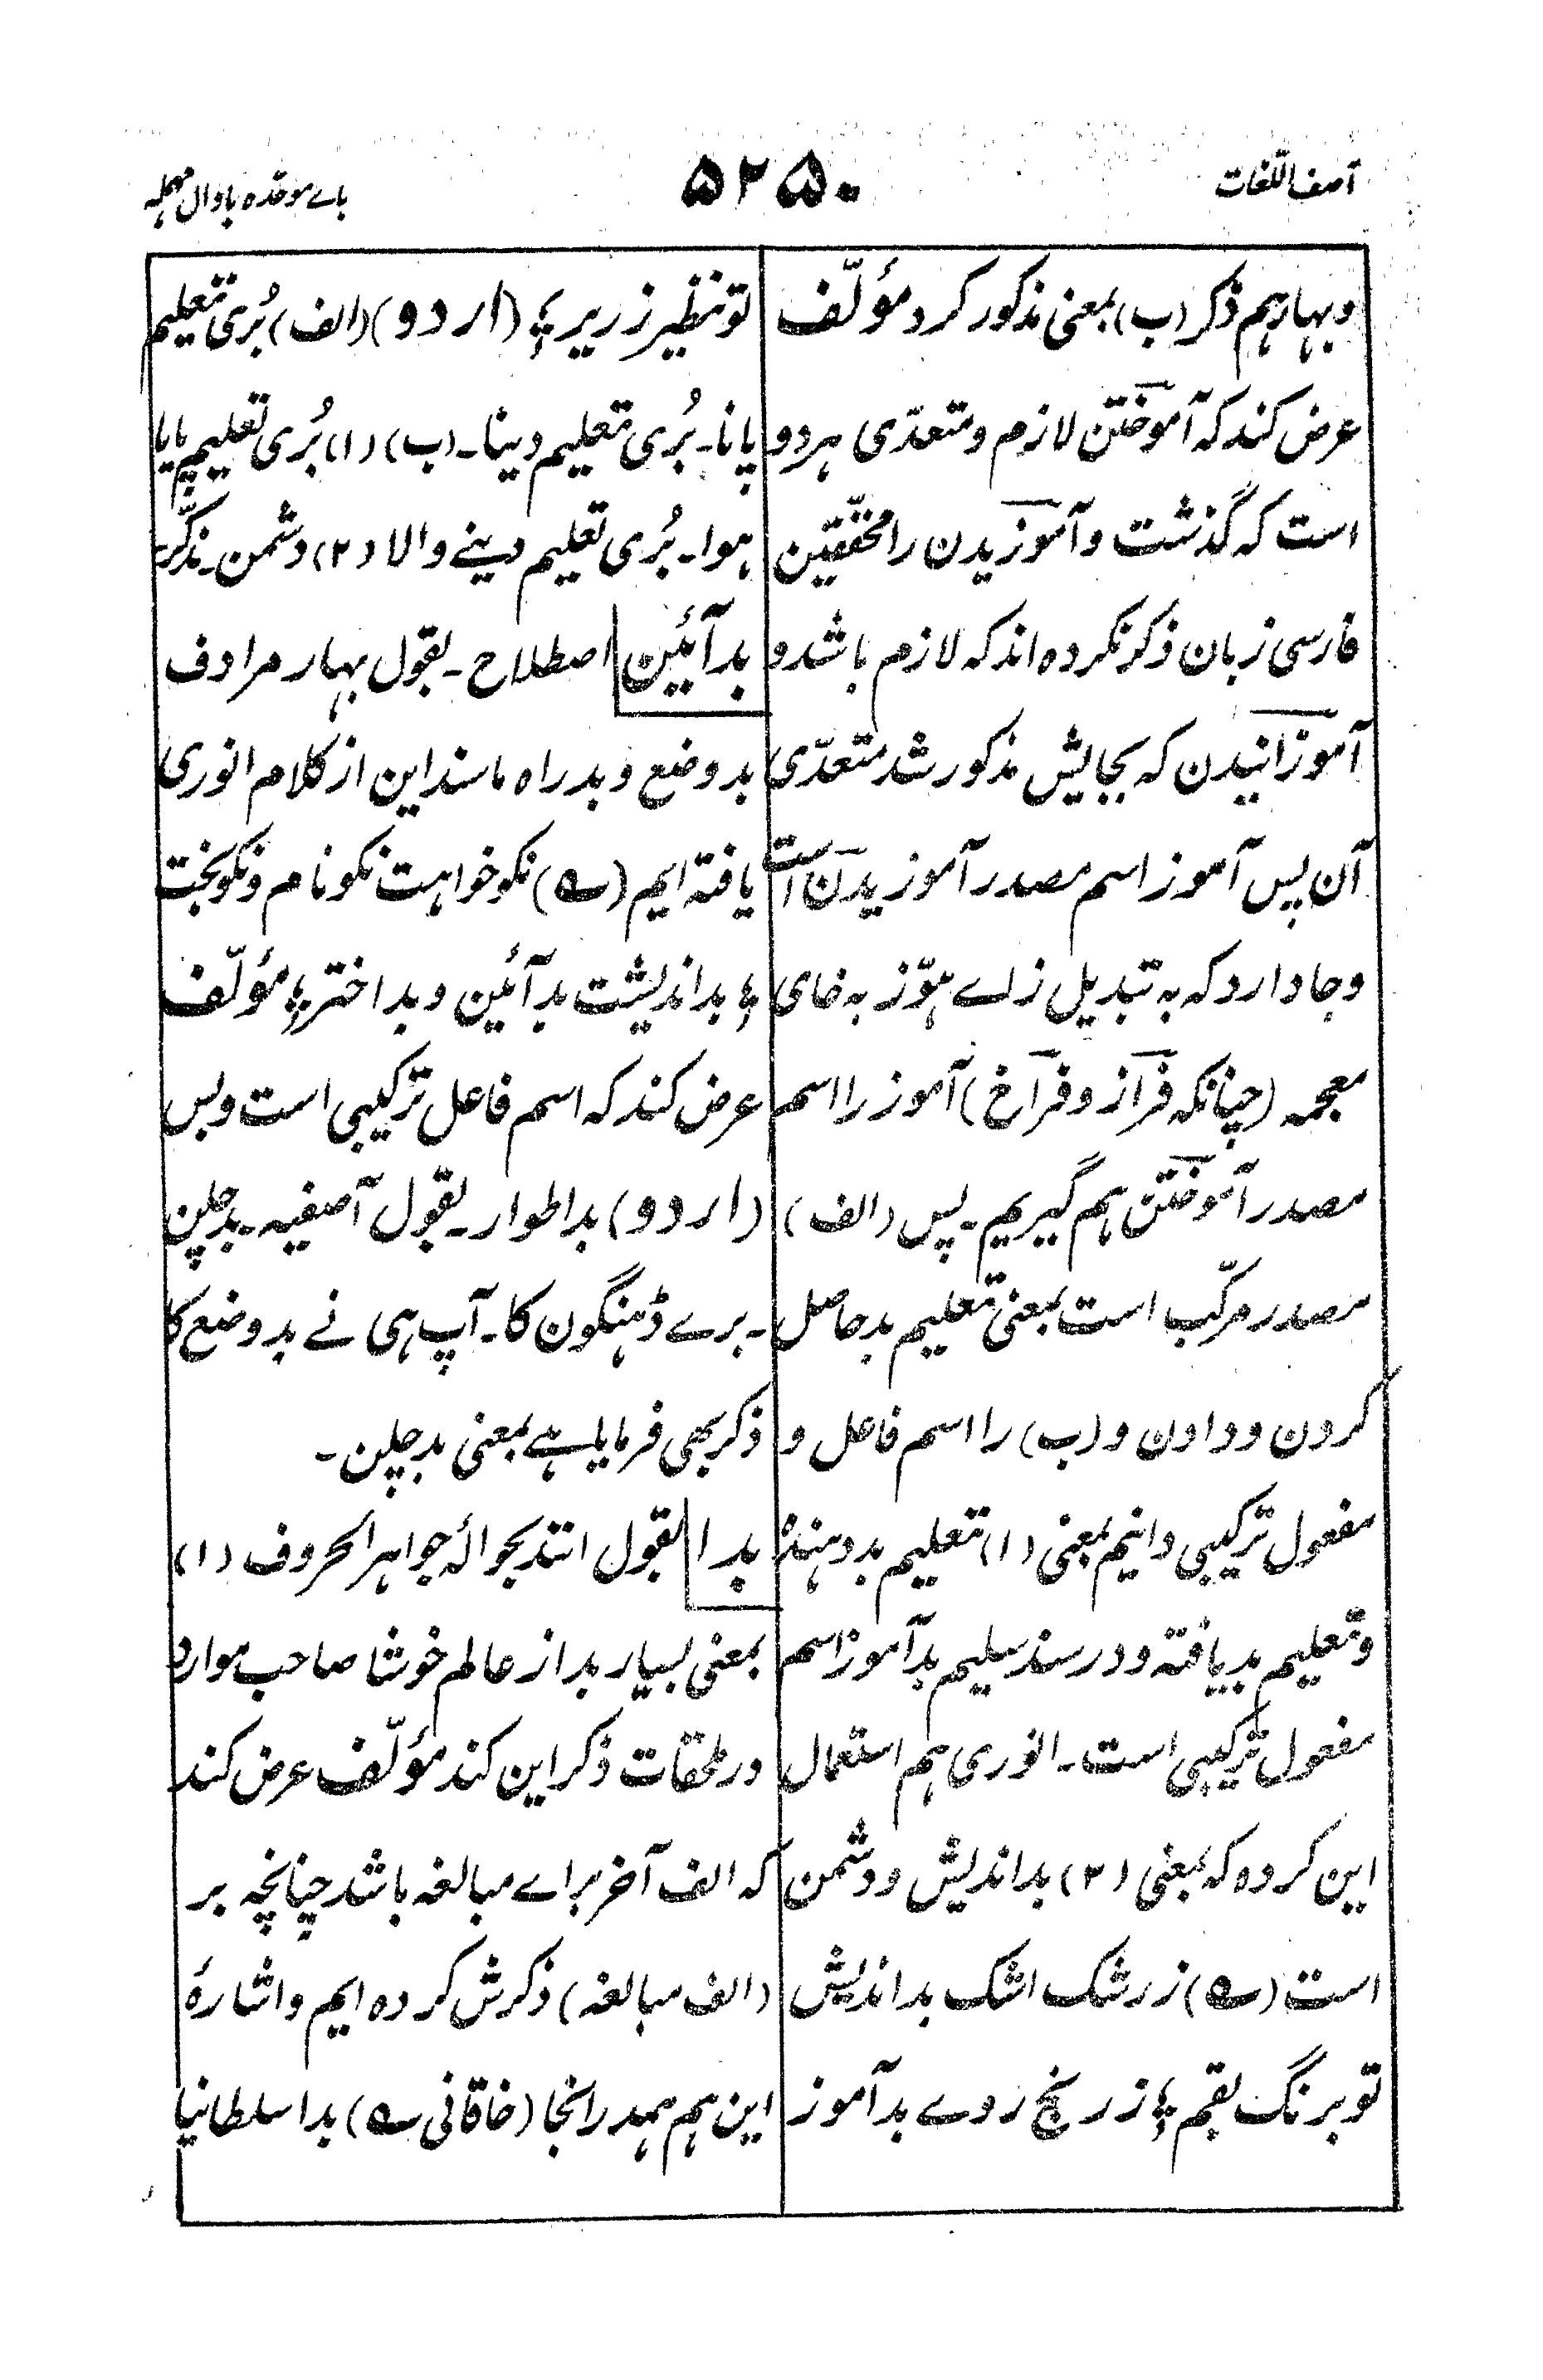 آصف اللّغات
۵۲۵۰
باے موحّدہ بادال مہملہ
وبہار ہم ذکر (ب) بمعنی مذکور کرد مؤلّف
عرض کند کہ آموختن لازم و متعدّی ہر دو
است کہ گذشت و آموزیدن را محقّقین
فارسی زبان ذکر نکردہ اند کہ لازم باشد و
آموزانیدن کہ بجایش مذکور شد متعدّی
آن پس آموز اسم مصدر آموزیدن است
و جا دارد کہ بہ تبدیل زاے ہوّز بہ خای
معجمہ (چنانکہ فراز و فراخ) آموز را اسم
مصدر آموختن ہم گیریم ۔ پس (الف)
مصدر مرکّب است بمعنی تعلیم بد حاصل
کردن و دادن و (ب) را اسم فاعل و
مفعول ترکیبی دانیم بمعنی (۱) تعلیم بد دہندۂ
و تعلیم بد یافتہ و در سند سلیم بدآموز اسم
مفعول ترکیبی است ۔ انوری ہم استعمال
این کردہ کہ بمعنی (۲) بداندیش و دشمن
است (ے) ز رشک اشک بداندیش
تو برنگ بقم ؛ ز رنج روے بدآموز
تو نظیر زریر ؛ (اردو) (الف) بُری تعلیم
پانا ۔ بُری تعلیم دینا ۔ (ب) (۱) بُری تعلیم پایا
ہوا ۔ بُری تعلیم دینے والا (۲) دشمن ۔ مذکّر ۔
بدآئین اصطلاح ۔ بقول بہار مرادف
بدوضع و بدراہ ما سند این از کلام انوری
یافتہ ایم (ے) نکو خواہت نکو نام و نکو بخت
؛ بداندیشت بدآئین و بداختر ؛ مؤلّف
عرض کند کہ اسم فاعل ترکیبی است و بس
(اردو) بداطوار ۔ بقول آصفیہ ۔ بدچلن
۔ برے ڈہنگون کا ۔ آپ ہی نے بدوضع کا
ذکر بھی فرمایا ہے بمعنی بدچلن ۔
بدا بقول انند بحوالۂ جواہر الحروف (۱)
بمعنی بسیار بد از عالم خوشا صاحب موارد
در ملحقات ذکر این کند مؤلّف عرض کند
کہ الف آخر براے مبالغہ باشد چنانچہ بر
(الف مبالغہ) ذکرش کردہ ایم و اشارۂ
این ہم ہمدرانجا (خاقانی ے) بدا سلطانیا